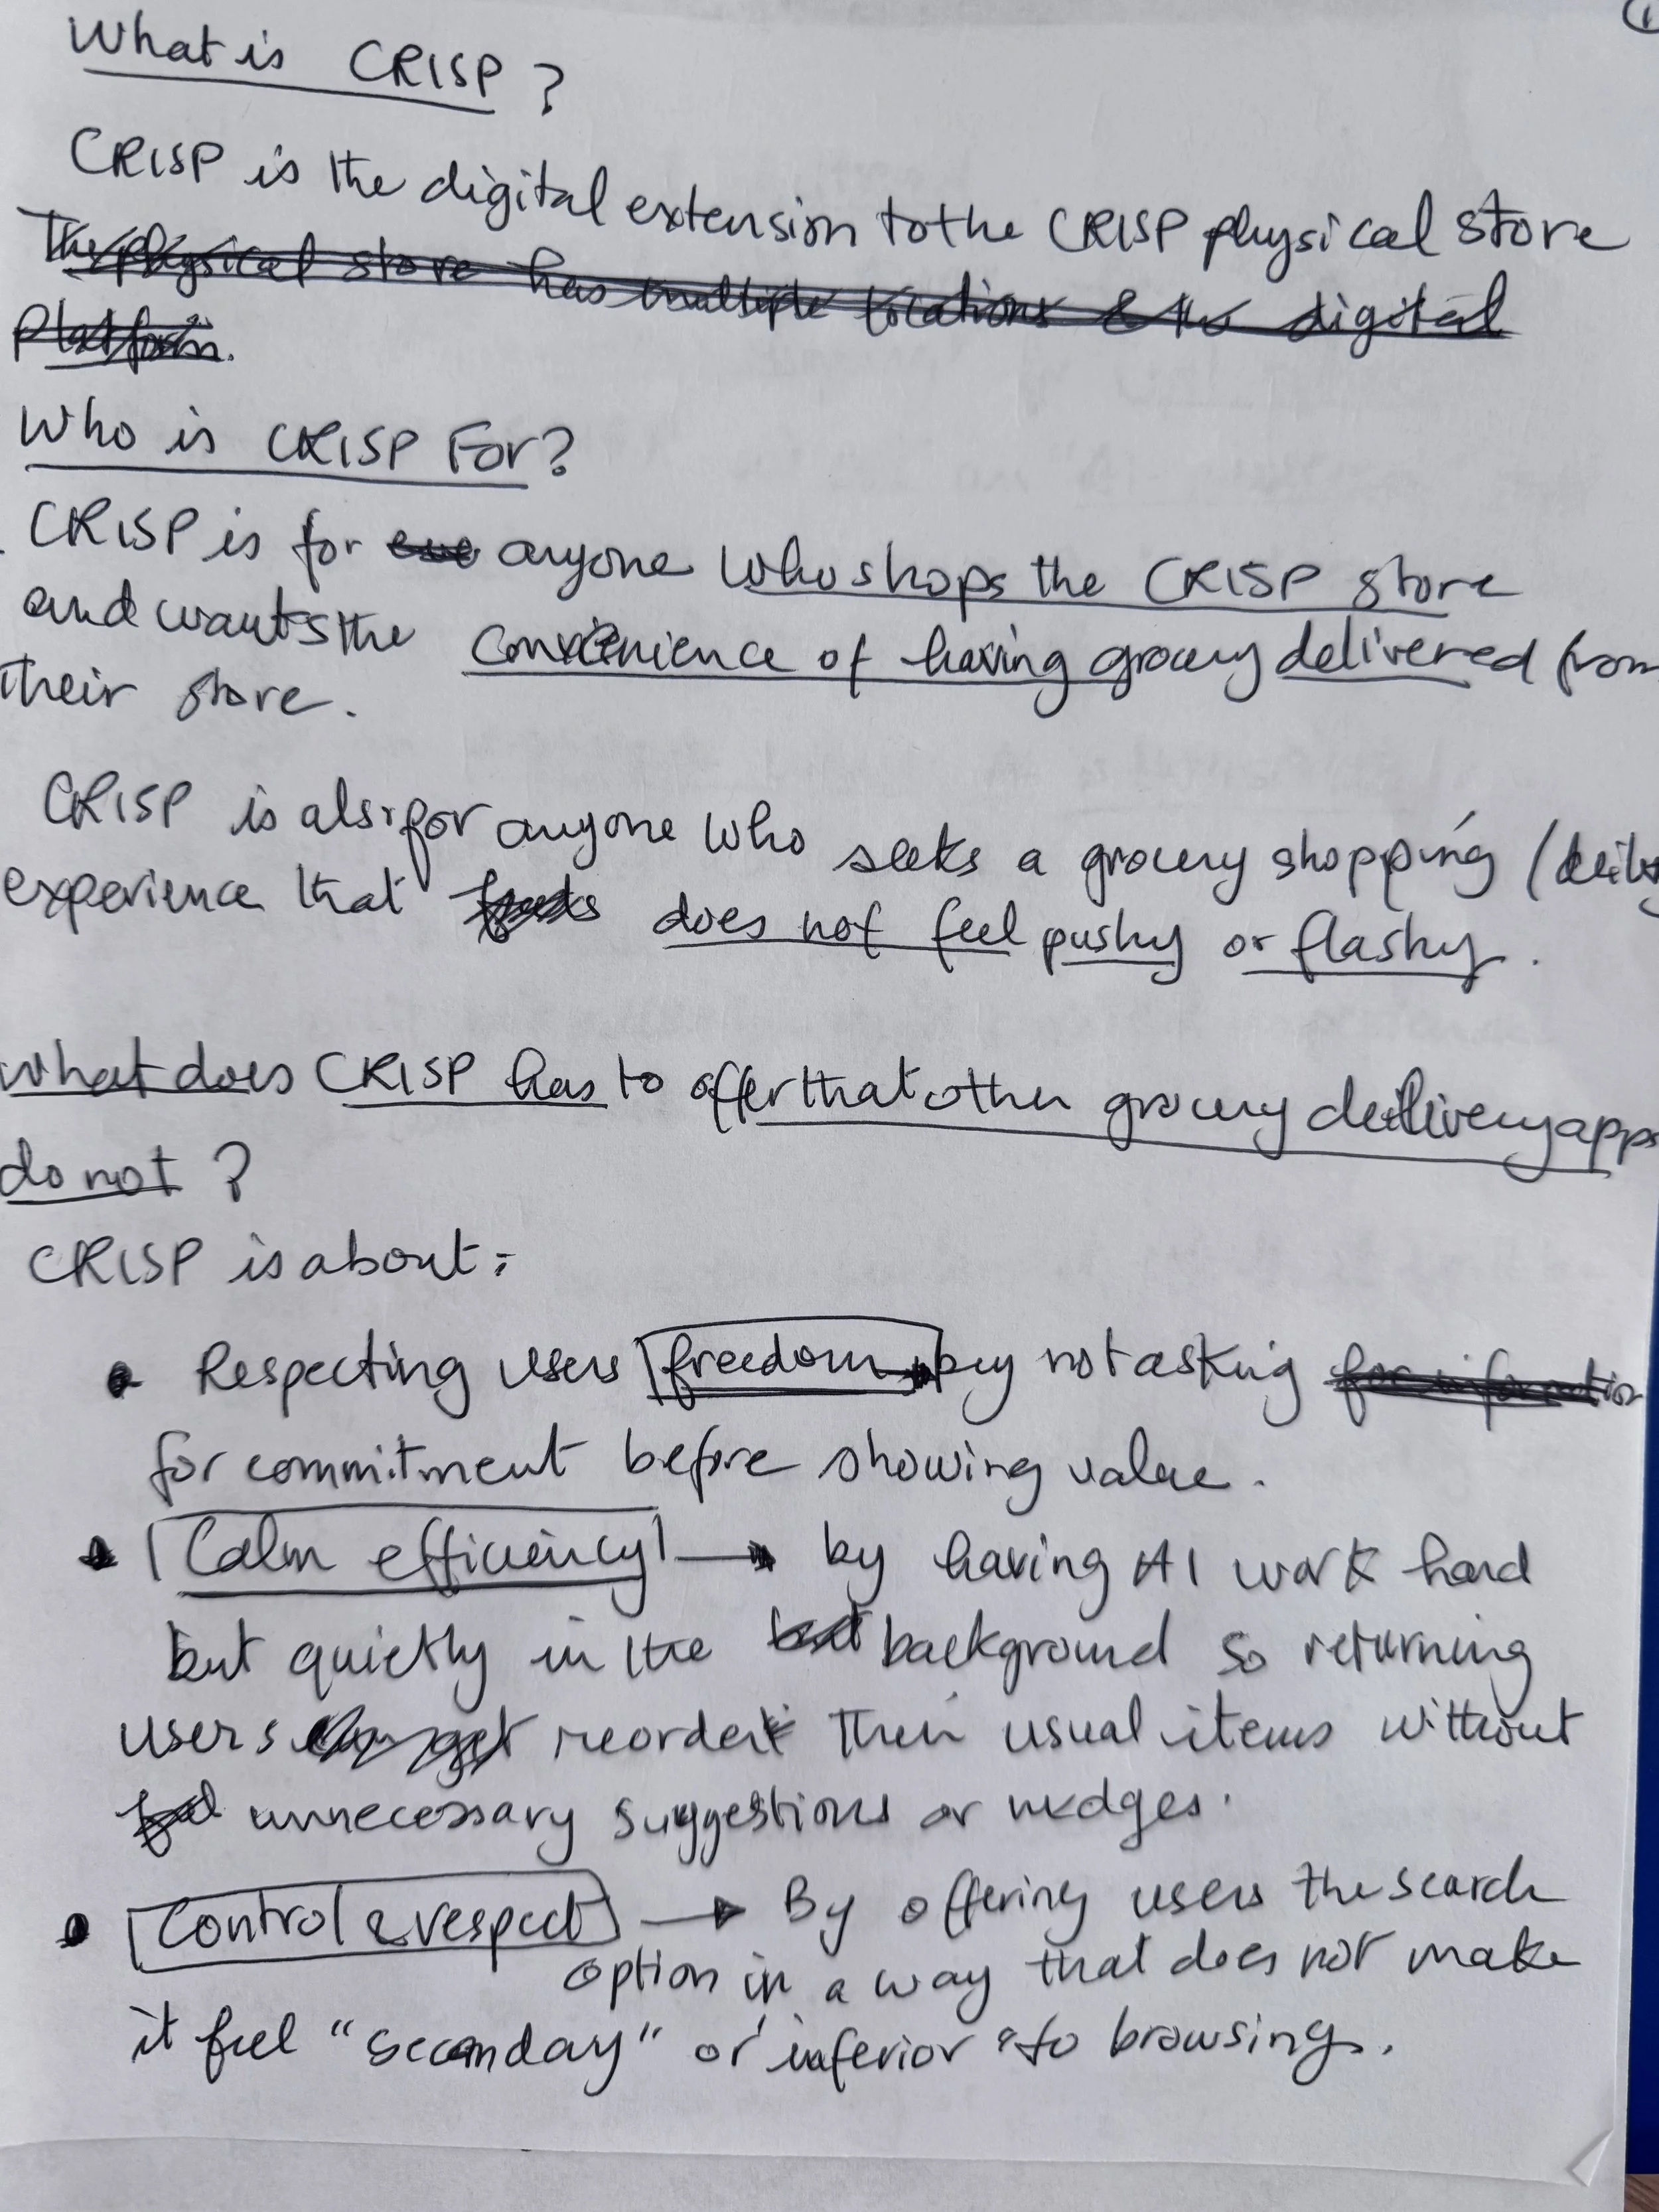 1
What is CRISP ?
CRISP is the digital extension to the CRISP physical store
The physical store has multiple locations & the digital
Platform.
Who is CRISP For?
CRISP is for eve anyone who shops the CRISP store
and wants the convenience of having grocery delivered from
their store.
CRISP is also for anyone who seeks a grocery shopping /
experience that does not feel pushy or flashy.
What does CRISP has to offer that other grocery delivery apps
do not ?
CRISP is about:
• Respecting users freedom by not asking for information
for commitment before showing value.
• Calm efficiency → by having AI work hard
but quietly in the background so returning
users can get reorder their usual items without
unnecessary suggestions or nudges.
• Control & respect → By offering users the search
option in a way that does not make
it feel "seconday" or "inferior" to browsing.